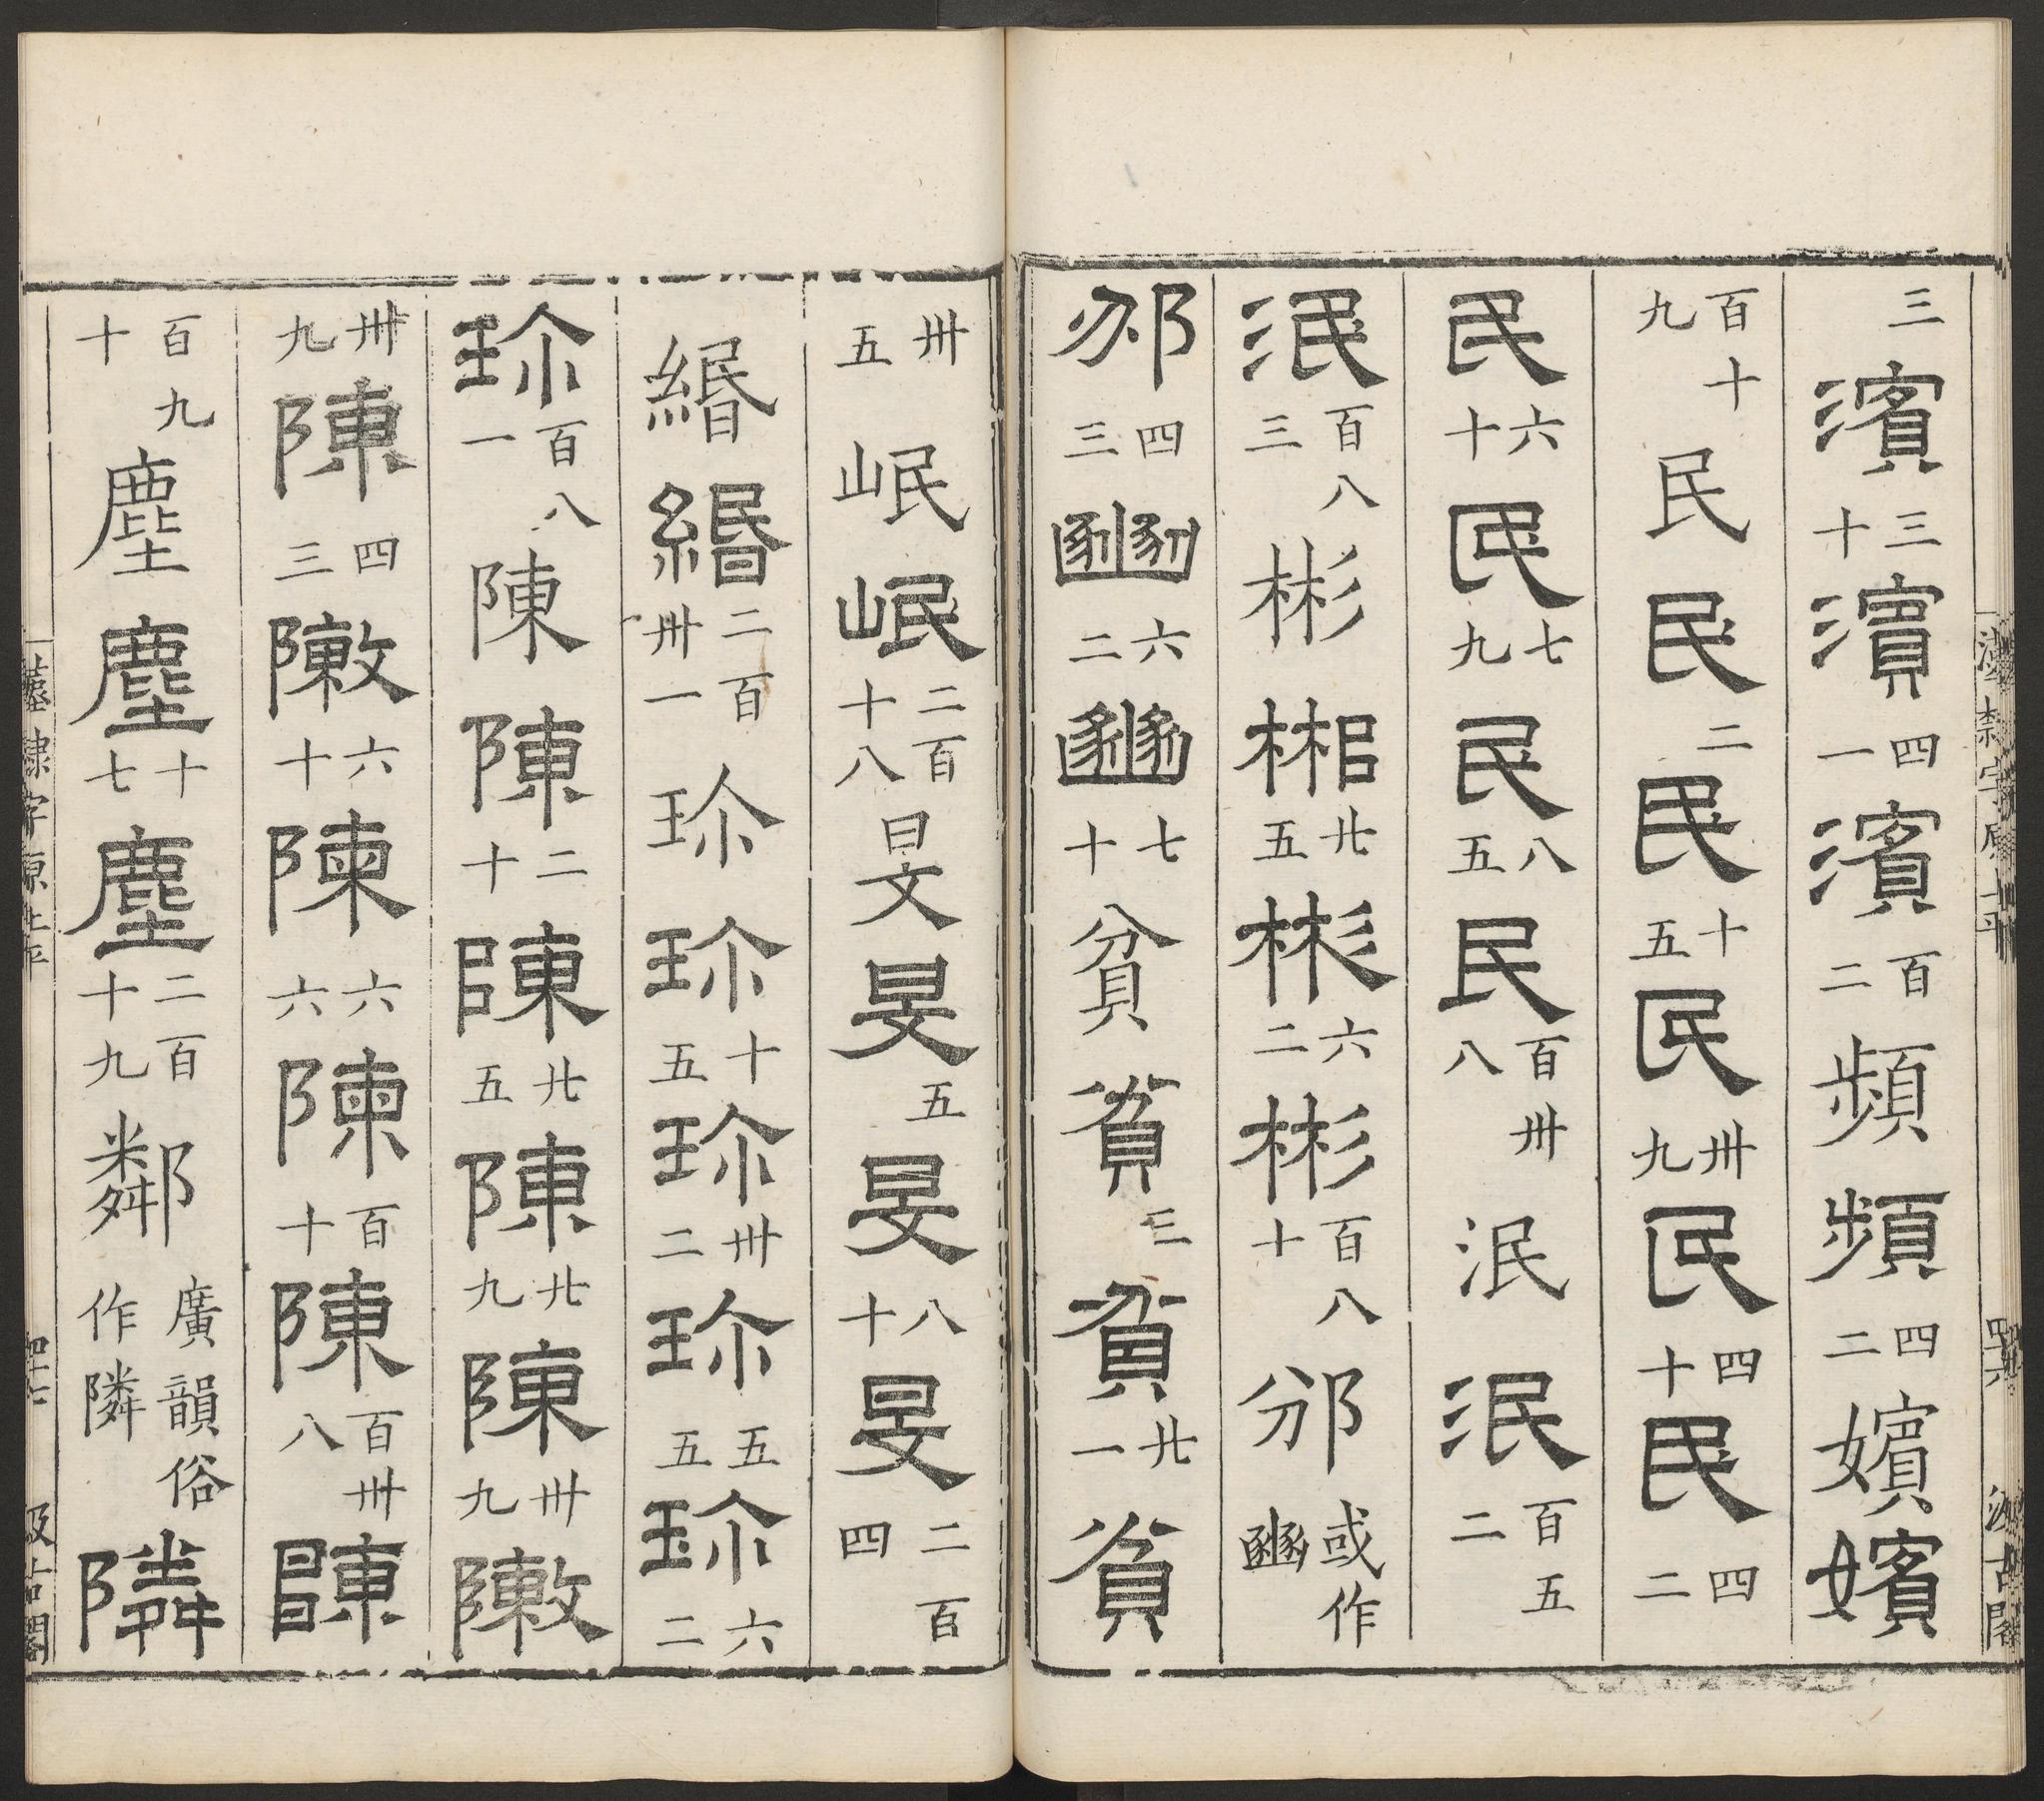 三濱三十濱四一濱百二頻頻四二嬪嬪
百十九民民二民十五民卅九民四十民四二
民六十民七九民八五民百卅八泯泯百五二
泯百八三彬彬廿五彬六二彬百八十邠或作豳
邠四三豳六二豳七十貧貧三貧廿一貧
卅五岷岷二百十八旻旻五旻八十旻二百四
緡緡二百卅一珎珎十五珎卅二珎五五珎六二
珎百八一陳陳二十陳廿五陳廿九陳卅九敶
卅九陳四三敶六十陳六六陳百十陳百卅八陳
百九十塵塵十七塵二百十九鄰廣韻俗作隣隣
漢隸字原上平
四十六
汲古閣
漢隸字原上平
四十七
汲古閣